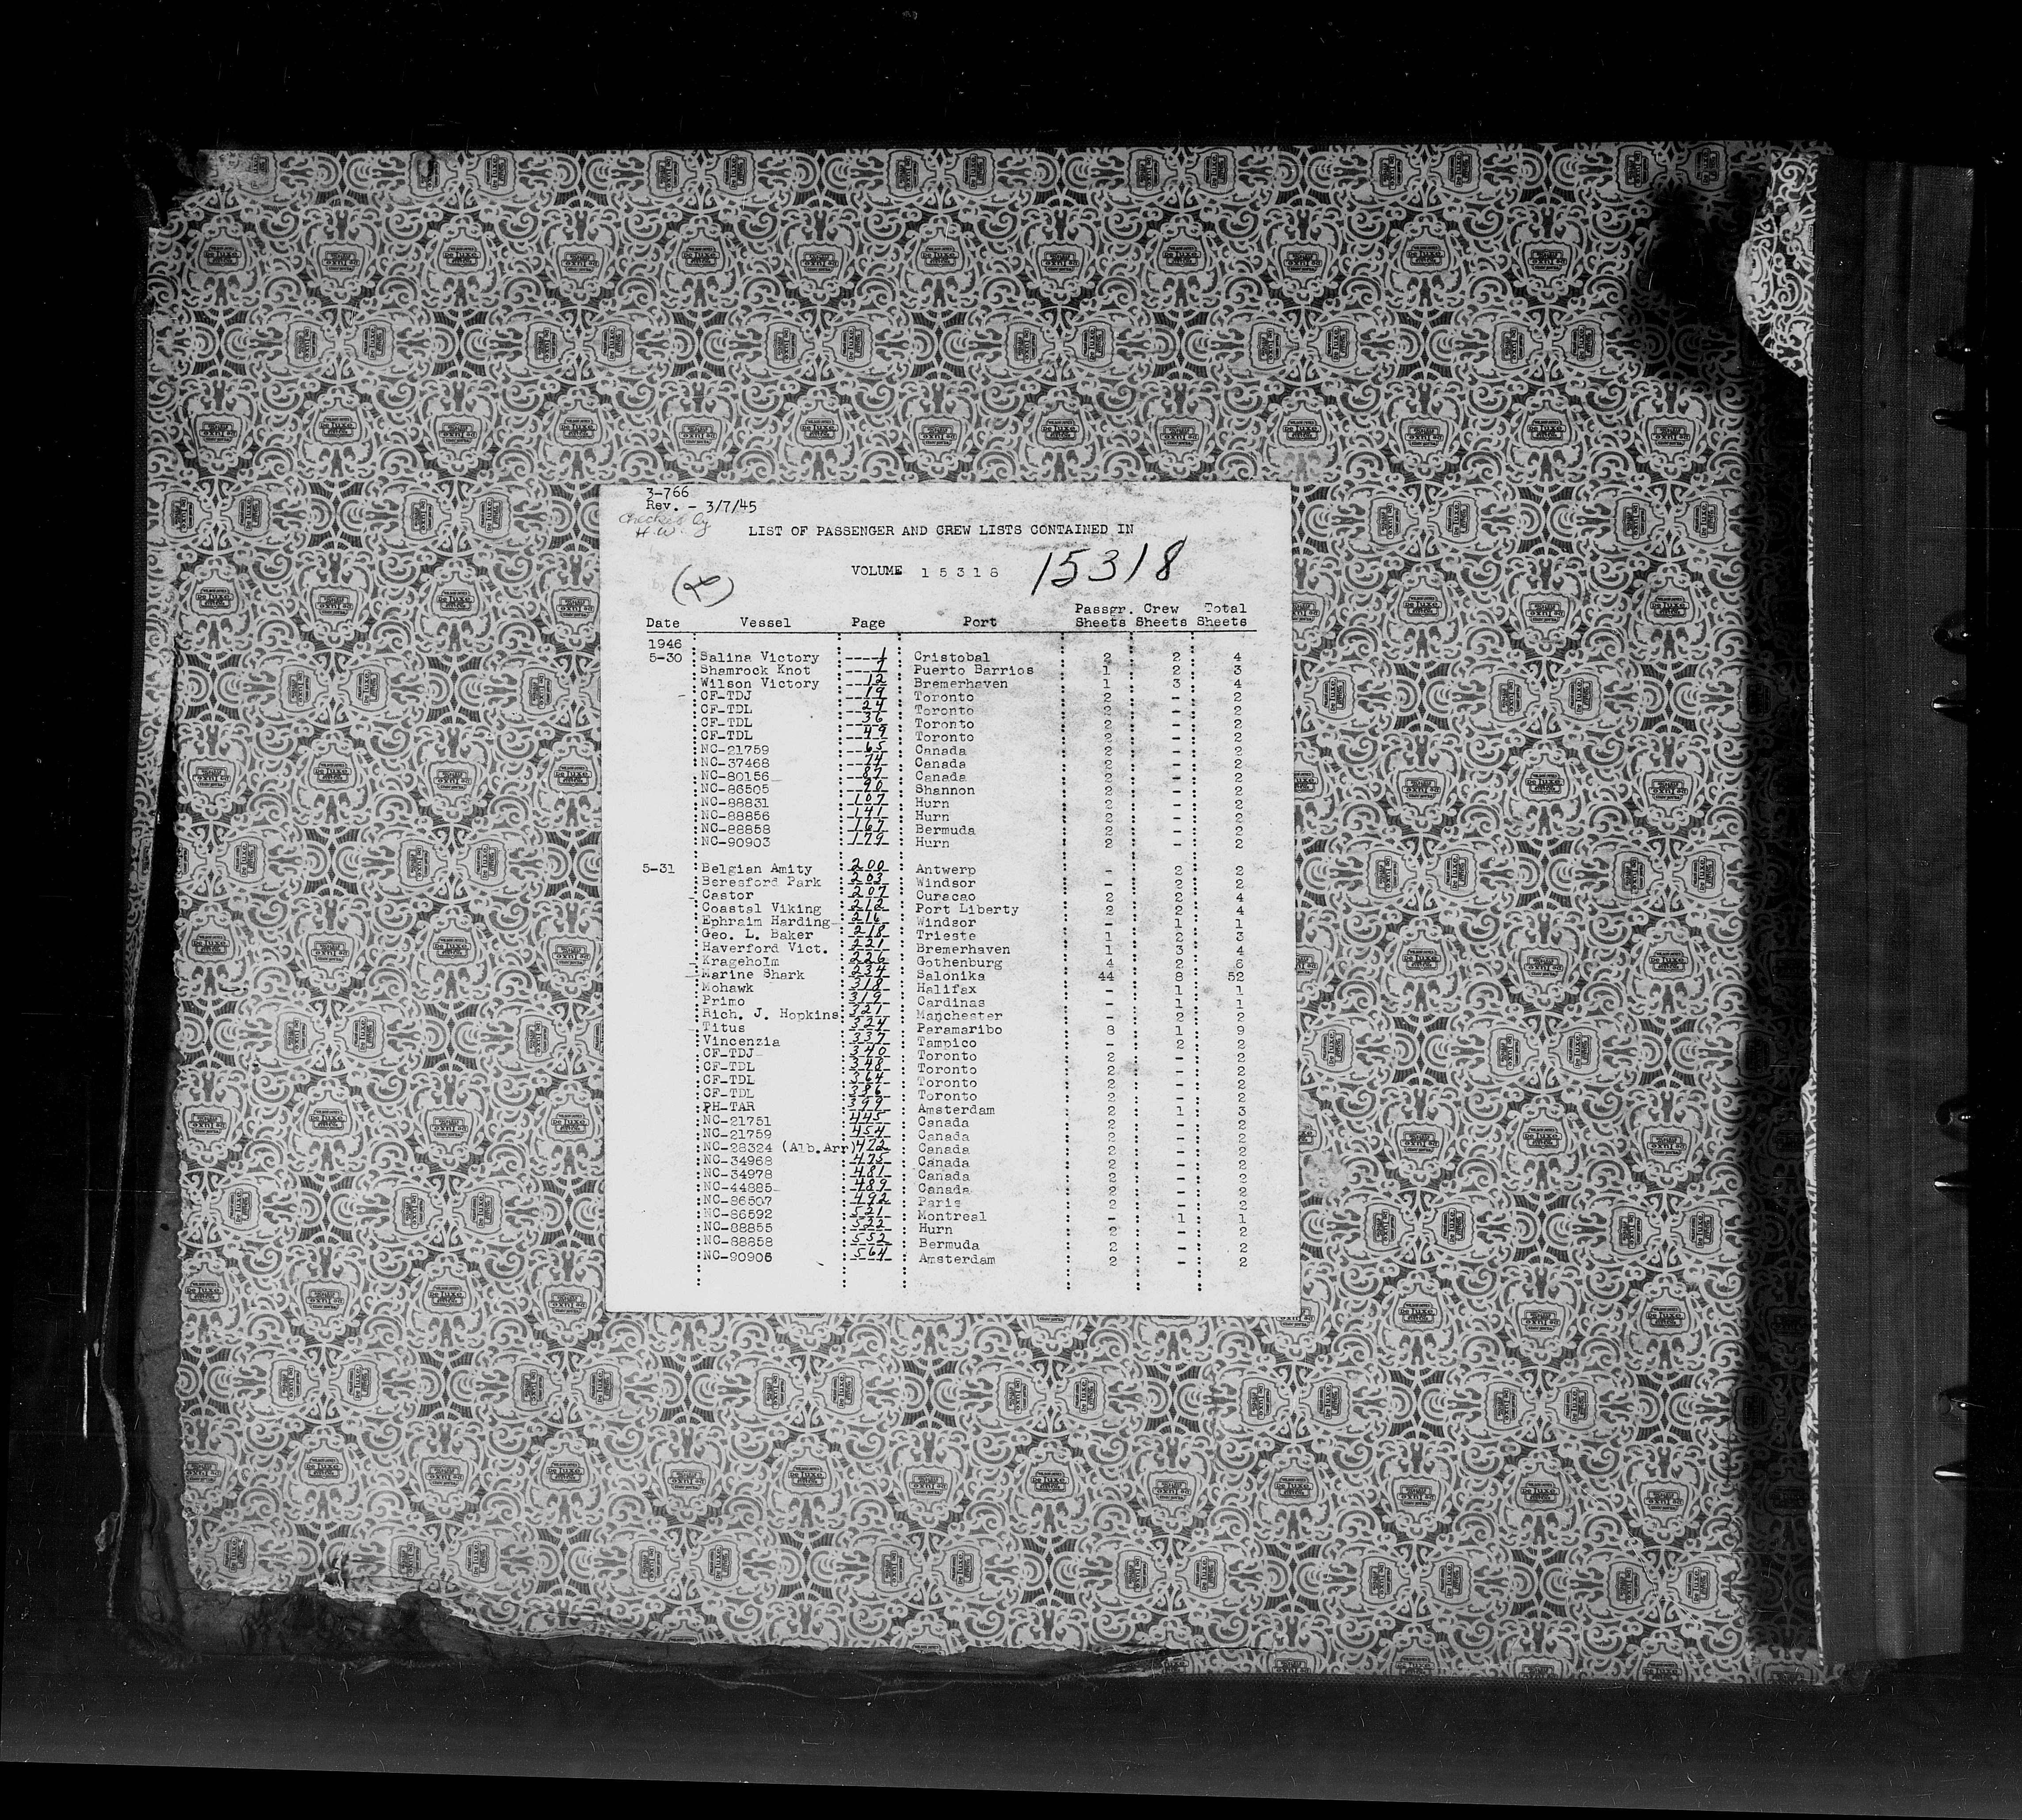 3-766
Rev. - 3/7/45
Checked by
H.W.
LIST OF PASSENGER AND CREW LISTS CONTAINED IN
VOLUME 15318 15318
Passgr. Crew Total
Date Vessel Page Port Sheets Sheets Sheets
1946
5-30 Salina Victory ----1 Cristobal 2 2 4
Shamrock Knot ----7 Puerto Barrios 1 2 3
Wilson Victory ---12 Bremerhaven 1 3 4
CF-TDJ ---19 Toronto 2 - 2
CF-TDL ---24 Toronto 2 - 2
CF-TDL ---36 Toronto 2 - 2
CF-TDL ---49 Toronto 2 - 2
NC-21759 ---65 Canada 2 - 2
NC-37468 ---74 Canada 2 - 2
NC-80156 ---87 Canada 2 - 2
NC-86505 ---90 Shannon 2 - 2
NC-88831 107 Hurn 2 - 2
NC-88856 141 Hurn 2 - 2
NC-88858 167 Bermuda 2 - 2
NC-90903 179 Hurn 2 - 2
5-31 Belgian Amity 200 Antwerp - 2 2
Beresford Park 203 Windsor - 2 2
Castor 207 Curacao 2 2 4
Coastal Viking 212 Port Liberty 2 2 4
Ephraim Harding 216 Windsor - 1 1
Geo. L. Baker 218 Trieste 1 2 3
Haverford Vict. 221 Bremerhaven 1 3 4
Krageholm 226 Gothenburg 4 2 6
Marine Shark 234 Salonika 44 8 52
Mohawk 318 Halifax - 1 1
Primo 319 Cardinas - 1 1
Rich. J. Hopkins 321 Manchester - 2 2
Titus 324 Paramaribo 8 1 9
Vincenzia 337 Tampico - 2 2
CF-TDJ 340 Toronto 2 - 2
CF-TDL 348 Toronto 2 - 2
CF-TDL 364 Toronto 2 - 2
CF-TDL 386 Toronto 2 - 2
PH-TAR 399 Amsterdam 2 1 3
NC-21751 445 Canada 2 - 2
NC-21759 454 Canada 2 - 2
NC-28324 (Alb.Arr) 472 Canada 2 - 2
NC-34968 475 Canada 2 - 2
NC-34978 481 Canada 2 - 2
NC-44885 489 Canada 2 - 2
NC-86507 492 Paris 2 - 2
NC-86592 521 Montreal - 1 1
NC-88855 522 Hurn 2 - 2
NC-88858 552 Bermuda 2 - 2
NC-90906 564 Amsterdam 2 - 2